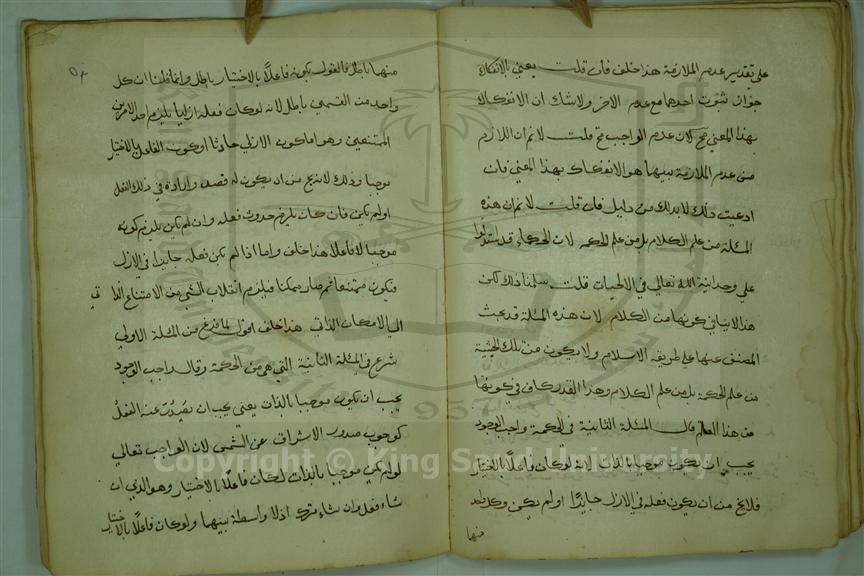 على تقدير عدم الملازمة هذا خلف فان قلت يعنى بالانفكاك
جواز ثبوت احدهما مع عدم الاخر ولا شك ان الانفكاك
بهذا المعنى لان عدم الواجب مح قلت لا نم ان اللازم
من عدم الملازمة بينهما هو الانفكاك بهذا المعنى فان
ادعيت ذلك لا بد لك من دليل فان قلت لا نم ان هذه
المسئلة من علم الكلام بل من علم الحكمة لان الحكماء قد استدلوا
على وحدانية الله تعالى في الالهيات قلت سلمنا ذلك لكن
هذا لا ينافي كونها من الكلام لان هذه المسئلة قد بحث
المصنف عنها على طريقة الاسلام ولا يكون من تلك الحيثية
من علم الحكمة بل من علم الكلام وهذا القدر كاف في كونها
من هذا العلم قال المسئلة الثانية في الحكمة واجب الوجود
يجب ان يكون موجبا بالذات لانه لو كان فاعلا بالاختيار
فلا يخ من ان يكون فعله في الازل جايزا او لم يكن وكل واحد
منها
منهما باطل فالقول بكونه فاعلا بالاختيار باطل وانما قلنا ان كل
واحد من القسمي باطل لانه لو كان فعله ازليا يلزم احد الامرين
الممتنعين وهو اما كون الازلي حادثا او كون الفاعل بالاختيار
موجبا وذلك لانه يخ من ان يكون له قصد وارادة في ذلك الفعل
او لم يكن فان كان يلزم حدوث فعله وان لم يكن يلزم كونه
موجبا لا فاعلا هذا خلف واما اذا لم يكن فعله جايزا في الازل
فيكون ممتنعا ثم صار ممكنا فيلزم انقلاب الشي من الامتناع الذاتي
الى الامكان الذاتي هذا خلف اقول لما فرغ من المسئلة الاولى
شرع في المسئلة الثانية التي هي من الحكمة وقال واجب الوجود
يجب ان يكون موجبا بالذات يعني يجب ان يصدر عنه الفعل
كوجوب صدور الاشراق عن الشمس لان الواجب تعالى
لو لم يكن موجبا بالذات لكان فاعلا بالاختيار وهو الذي ان
شاء فعل وان شاء ترك اذ لا واسطة بينهما ولو كان فاعلا بالاختيار
Copyright © King Saud University